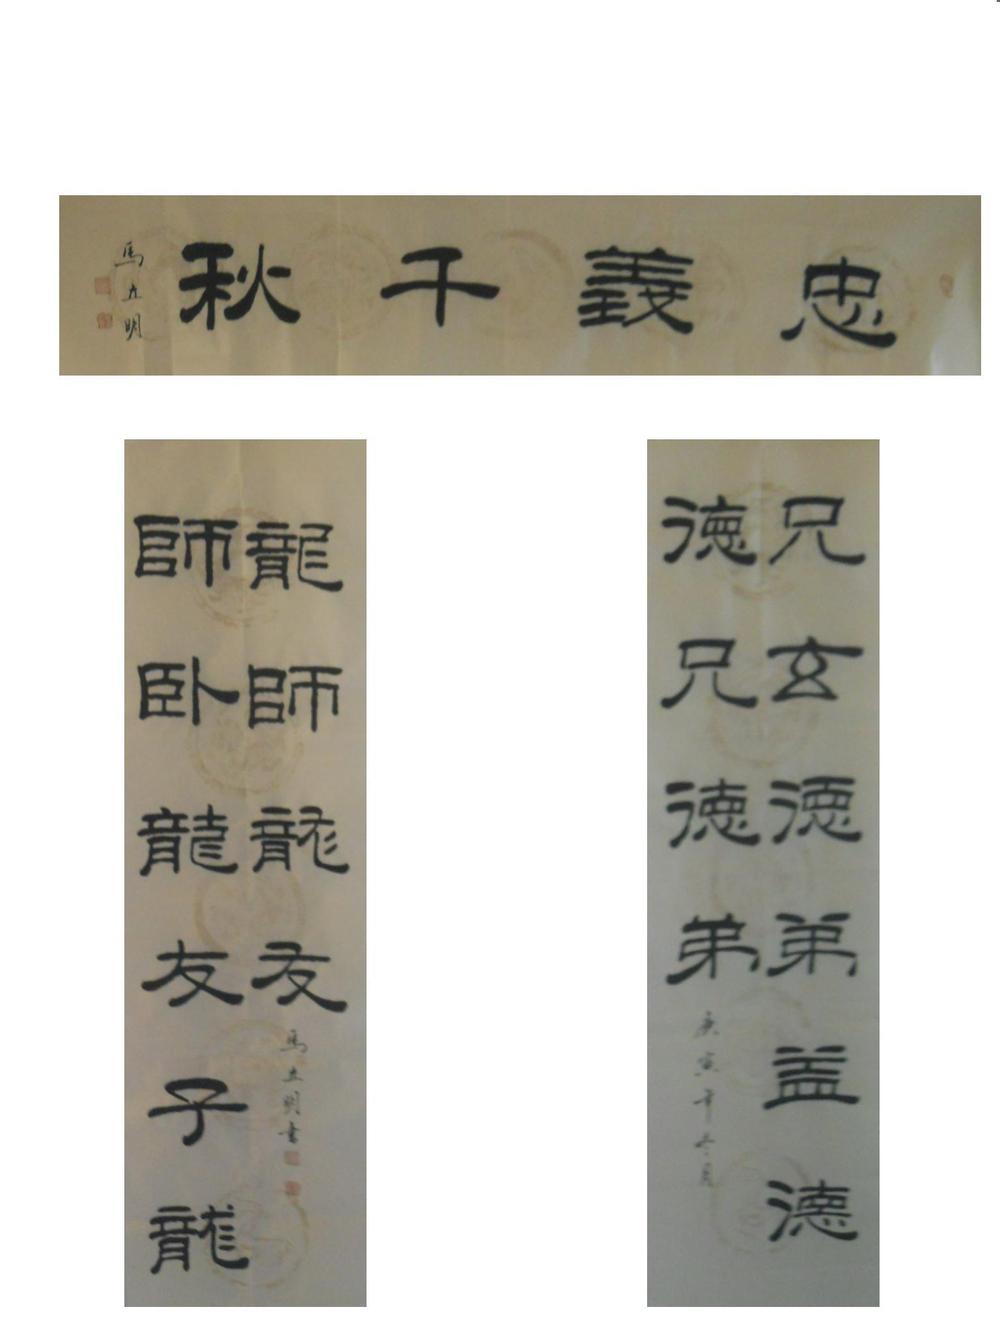 忠義千秋
馬立明
兄玄德弟益德
德兄德弟
庚寅年冬月
師卧龍友子龍
龍師龍友
馬立明書